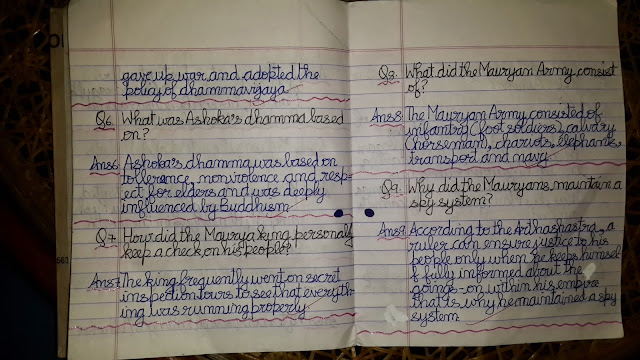 gave up war and adopted the
policy of dhammavijaya
Q6. What was Ashoka's dhamma based
on?
Ans6. Ashoka's dhamma was based on
tollerence, nonviolence and resp-
ect for elders and was deeply
influenced by Buddhism
Q7. How did the Maurya king personally
keep a check on his people?
Ans7. The king frequently went on secret
inspection tours to see that everyth-
ing was running properly.
Q8. What did the Mauryan Army consist
of?
Ans8. The Mauryan Army consisted of
infantry (foot soldiers), calvary
(horseman), chariots, elephants,
transport and navy
Q9. Why did the Mauryans maintain a
spy system?
Ans9. According to the Arthashastra, a
ruler can ensure justice to his
people only when he keeps himsel
f fully informed about the
goings-on within his empire
that is why he maintained a spy
system